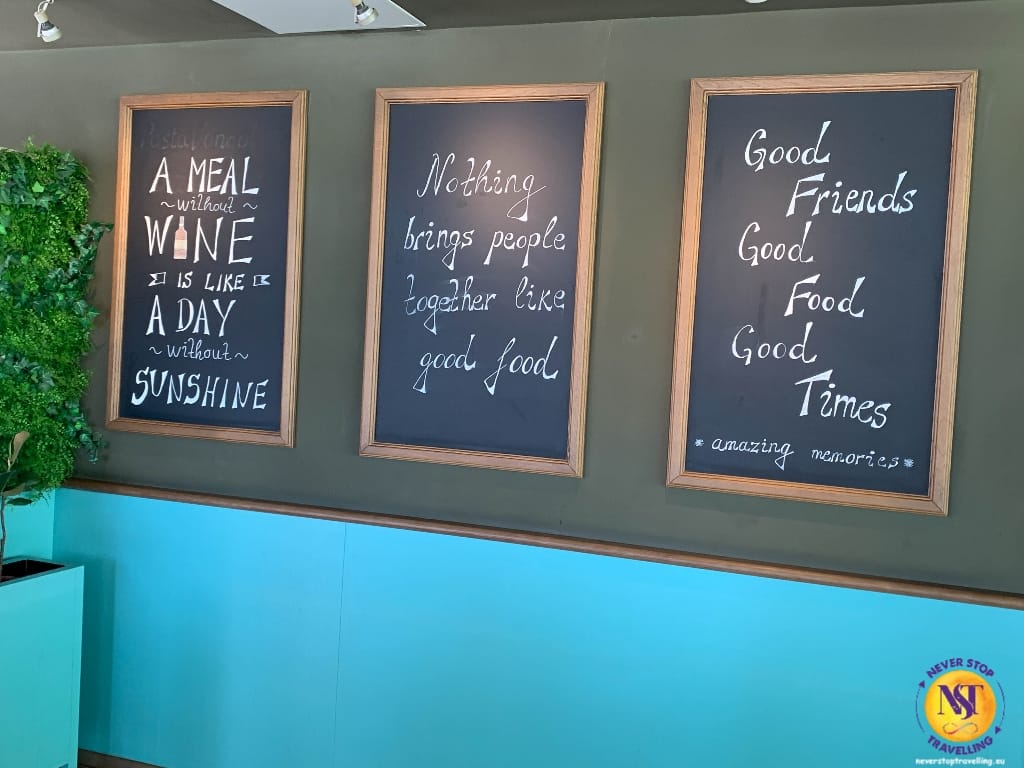 A MEAL
~without~
WINE
IS LIKE
A DAY
~without~
SUNSHINE
Nothing
brings people
together like
good food
Good
Friends
Good
Food
Good
Times
* amazing memories *
NEVER STOP
NST
TRAVELLING
neverstoptravelling.eu